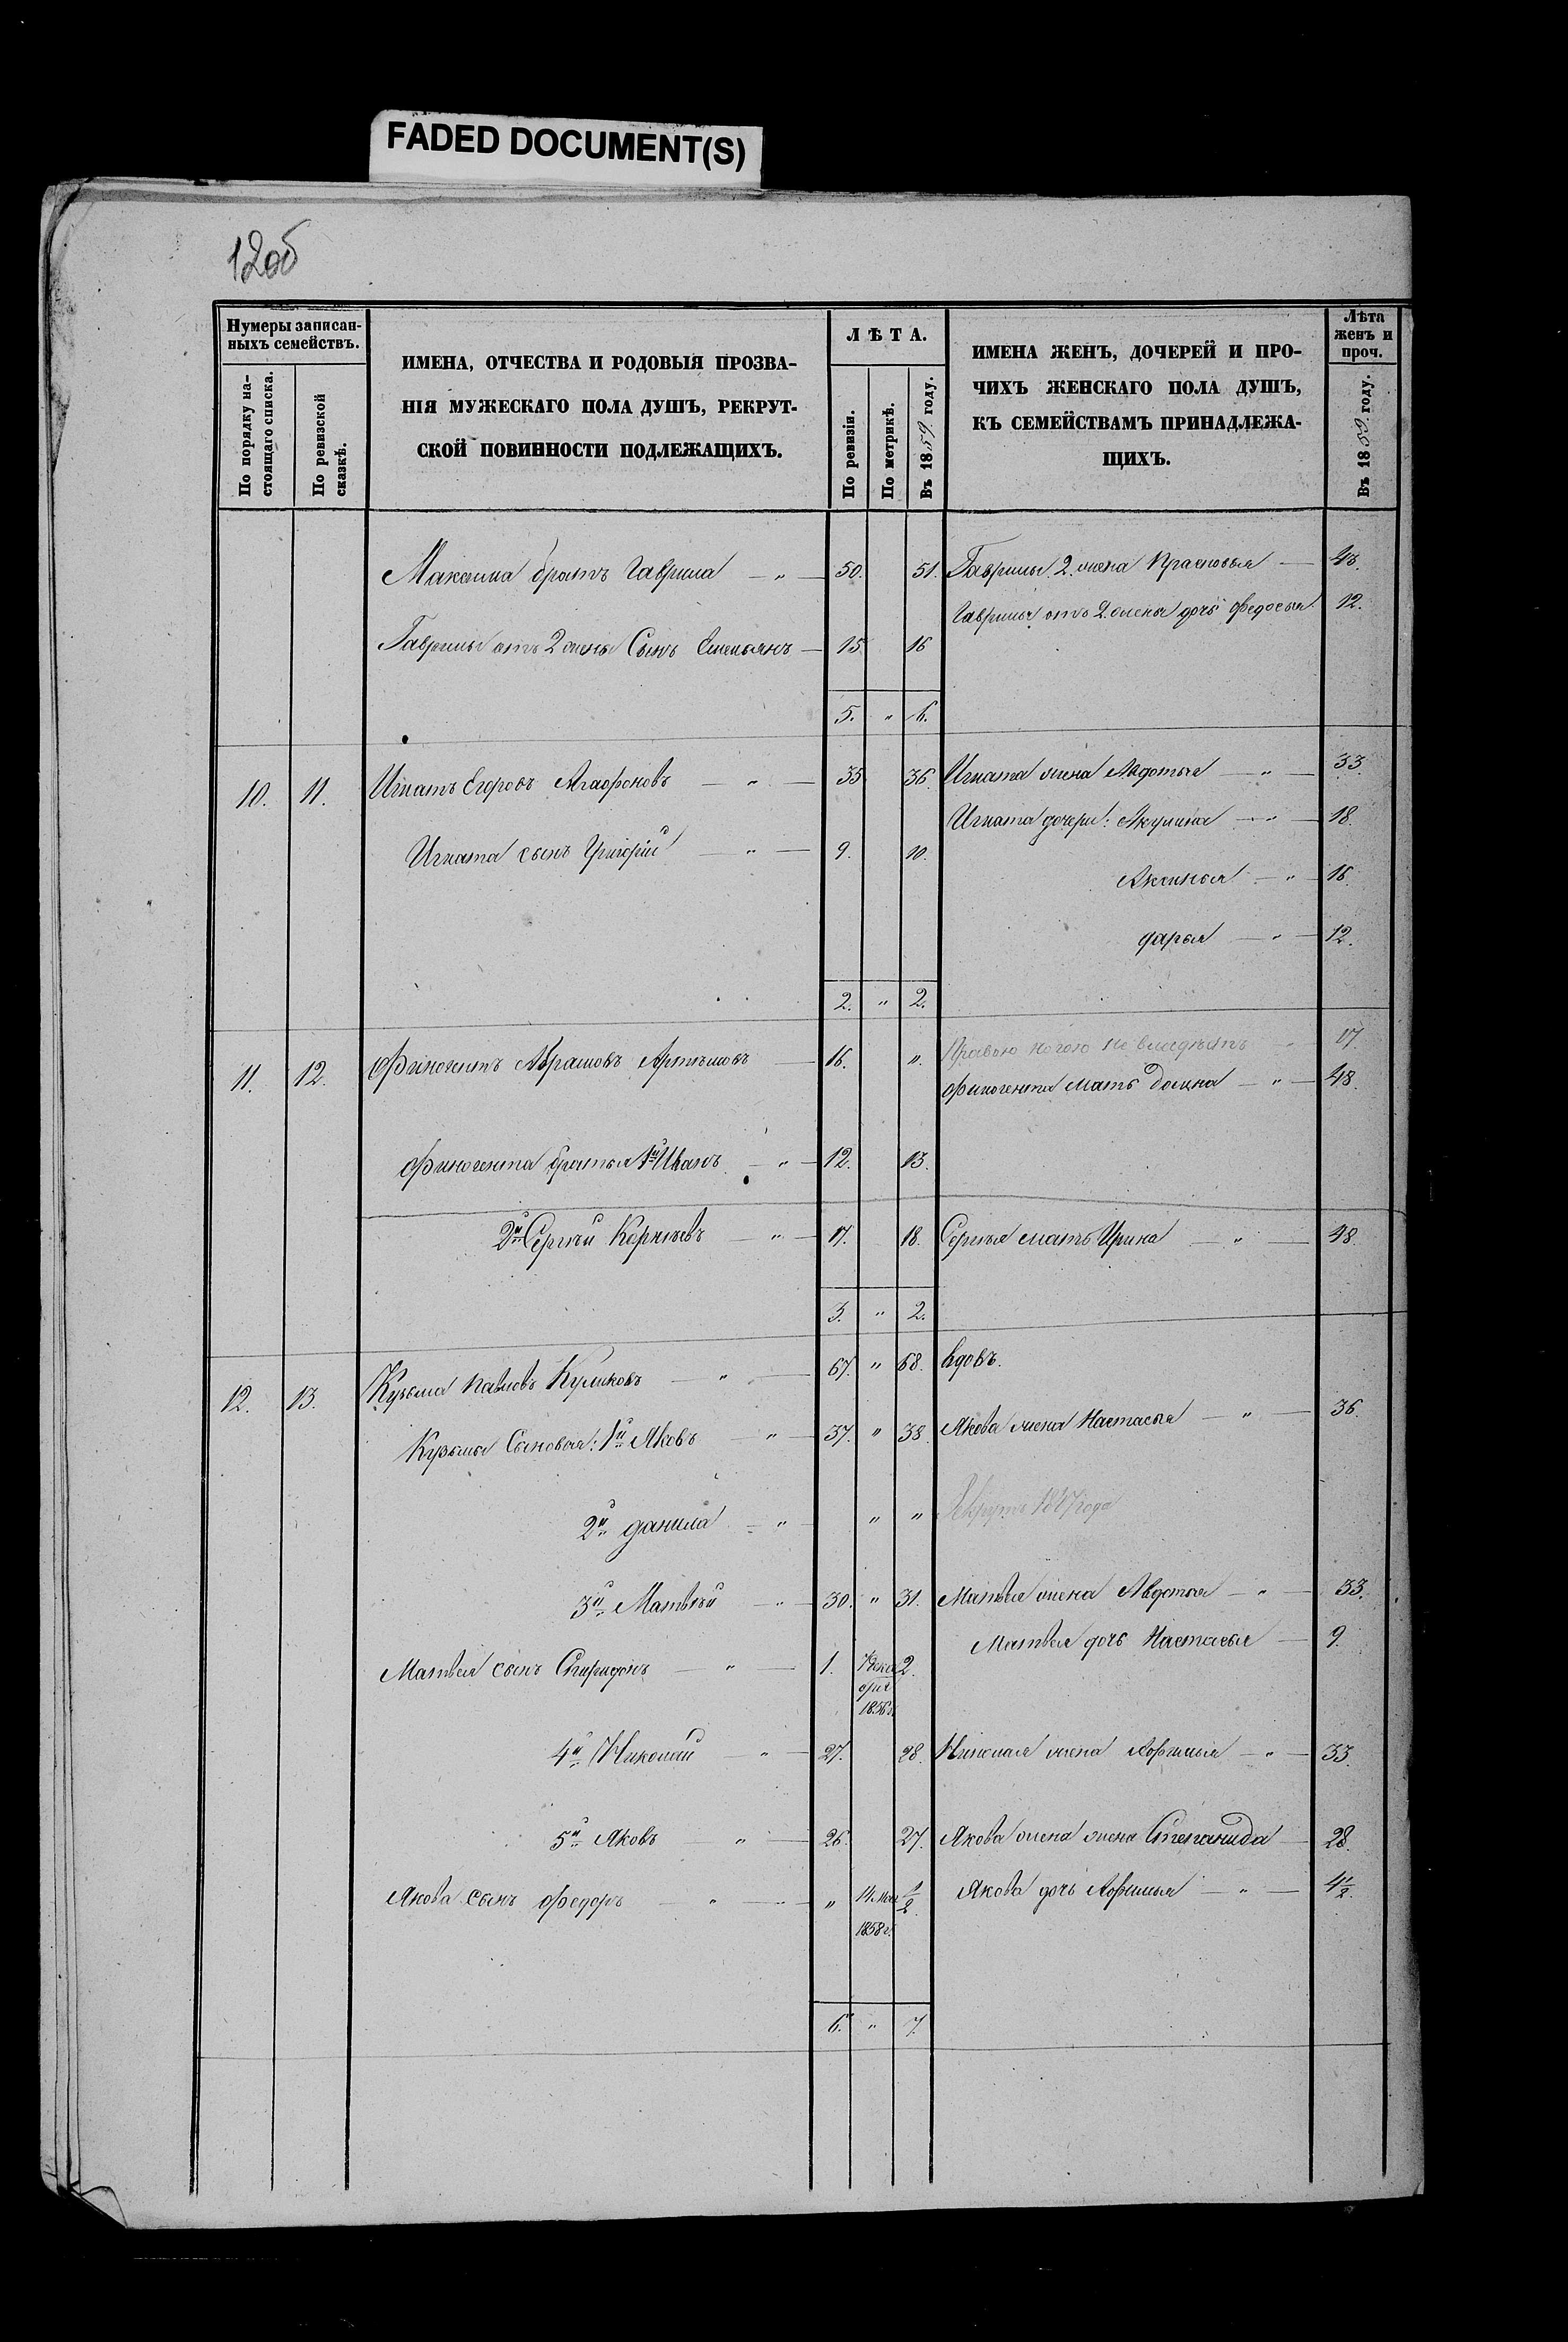 FADED DOCUMENT(S)
12об
Нумеры записан-
ныхъ семействъ.
По порядку на-
стоящаго списка.
По ревизской
сказкѣ.
ИМЕНА, ОТЧЕСТВА И РОДОВЫЯ ПРОЗВА-
НІЯ МУЖЕСКАГО ПОЛА ДУШЪ, РЕКРУТ-
СКОЙ ПОВИННОСТИ ПОДЛЕЖАЩИХЪ.
ЛѢТА.
По ревизіи.
По метрикѣ.
Въ 1859. году.
ИМЕНА ЖЕНЪ, ДОЧЕРЕЙ И ПРО-
ЧИХЪ ЖЕНСКАГО ПОЛА ДУШЪ,
КЪ СЕМЕЙСТВАМЪ ПРИНАДЛЕЖА-
ЩИХЪ.
Лѣта
женъ и
проч.
Въ 1859. году.
Максима братъ Гаврила — „ — 50. 51. Гаврилы 2. жена Прасковья — 48.
Гаврилы отъ 2 жены дочь Федосья. 12.
Гаврилы отъ 2 жены Сынъ Емельянъ — 15. 16
5. „ 6.
10. 11. Игнатъ Егоровъ Агафоновъ — „ — 35 36. Игната жена Авдотья — „ — 33.
Игната дочери: Акулина — „ — 18.
Игната сынъ Григорій — „ — 9. 10.
Аксинья — „ — 16.
дарья — „ — 12.
2. „ 2.
11. 12. Финогентъ Абрамовъ Артемовъ — 16. „. Правою ногою не владѣетъ „ 17.
Финогента мать Домна — „ — 48.
Финогента братья 1й Иванъ — „ — 12. 13.
2й Сергѣй Корнѣевъ — „ — 17. 18. Сергѣя мать Ирина — „ — 48.
3. „ 2.
12. 13. Кузьма Павловъ Куликовъ — „ — 67. „ 68. вдовъ.
Кузьмы Сыновья: 1й Яковъ — „ — 37. „ 38. Якова жена Настасья — „ — 36.
2й данила — „ „ „ Рекрутъ 1847 года
3й Матвѣй — „ — 30. „ 31. Матвѣя жена Авдотья — „ — 33.
Матвѣя дочь Настасья — 9.
Матвѣя сынъ Спиридонъ — „ — 1. 2.
1856 г.
4й Николай — „ — 27. 28. Николая жена Афимья — „ — 33.
5й Яковъ — „ — 26. 27. Якова жена жена Степанида — 28.
Якова сынъ Федоръ — „ — „ 14 мая 1/2 Якова дочь Афимья — „ — 4 1/2.
1858 г.
6. „ 7.